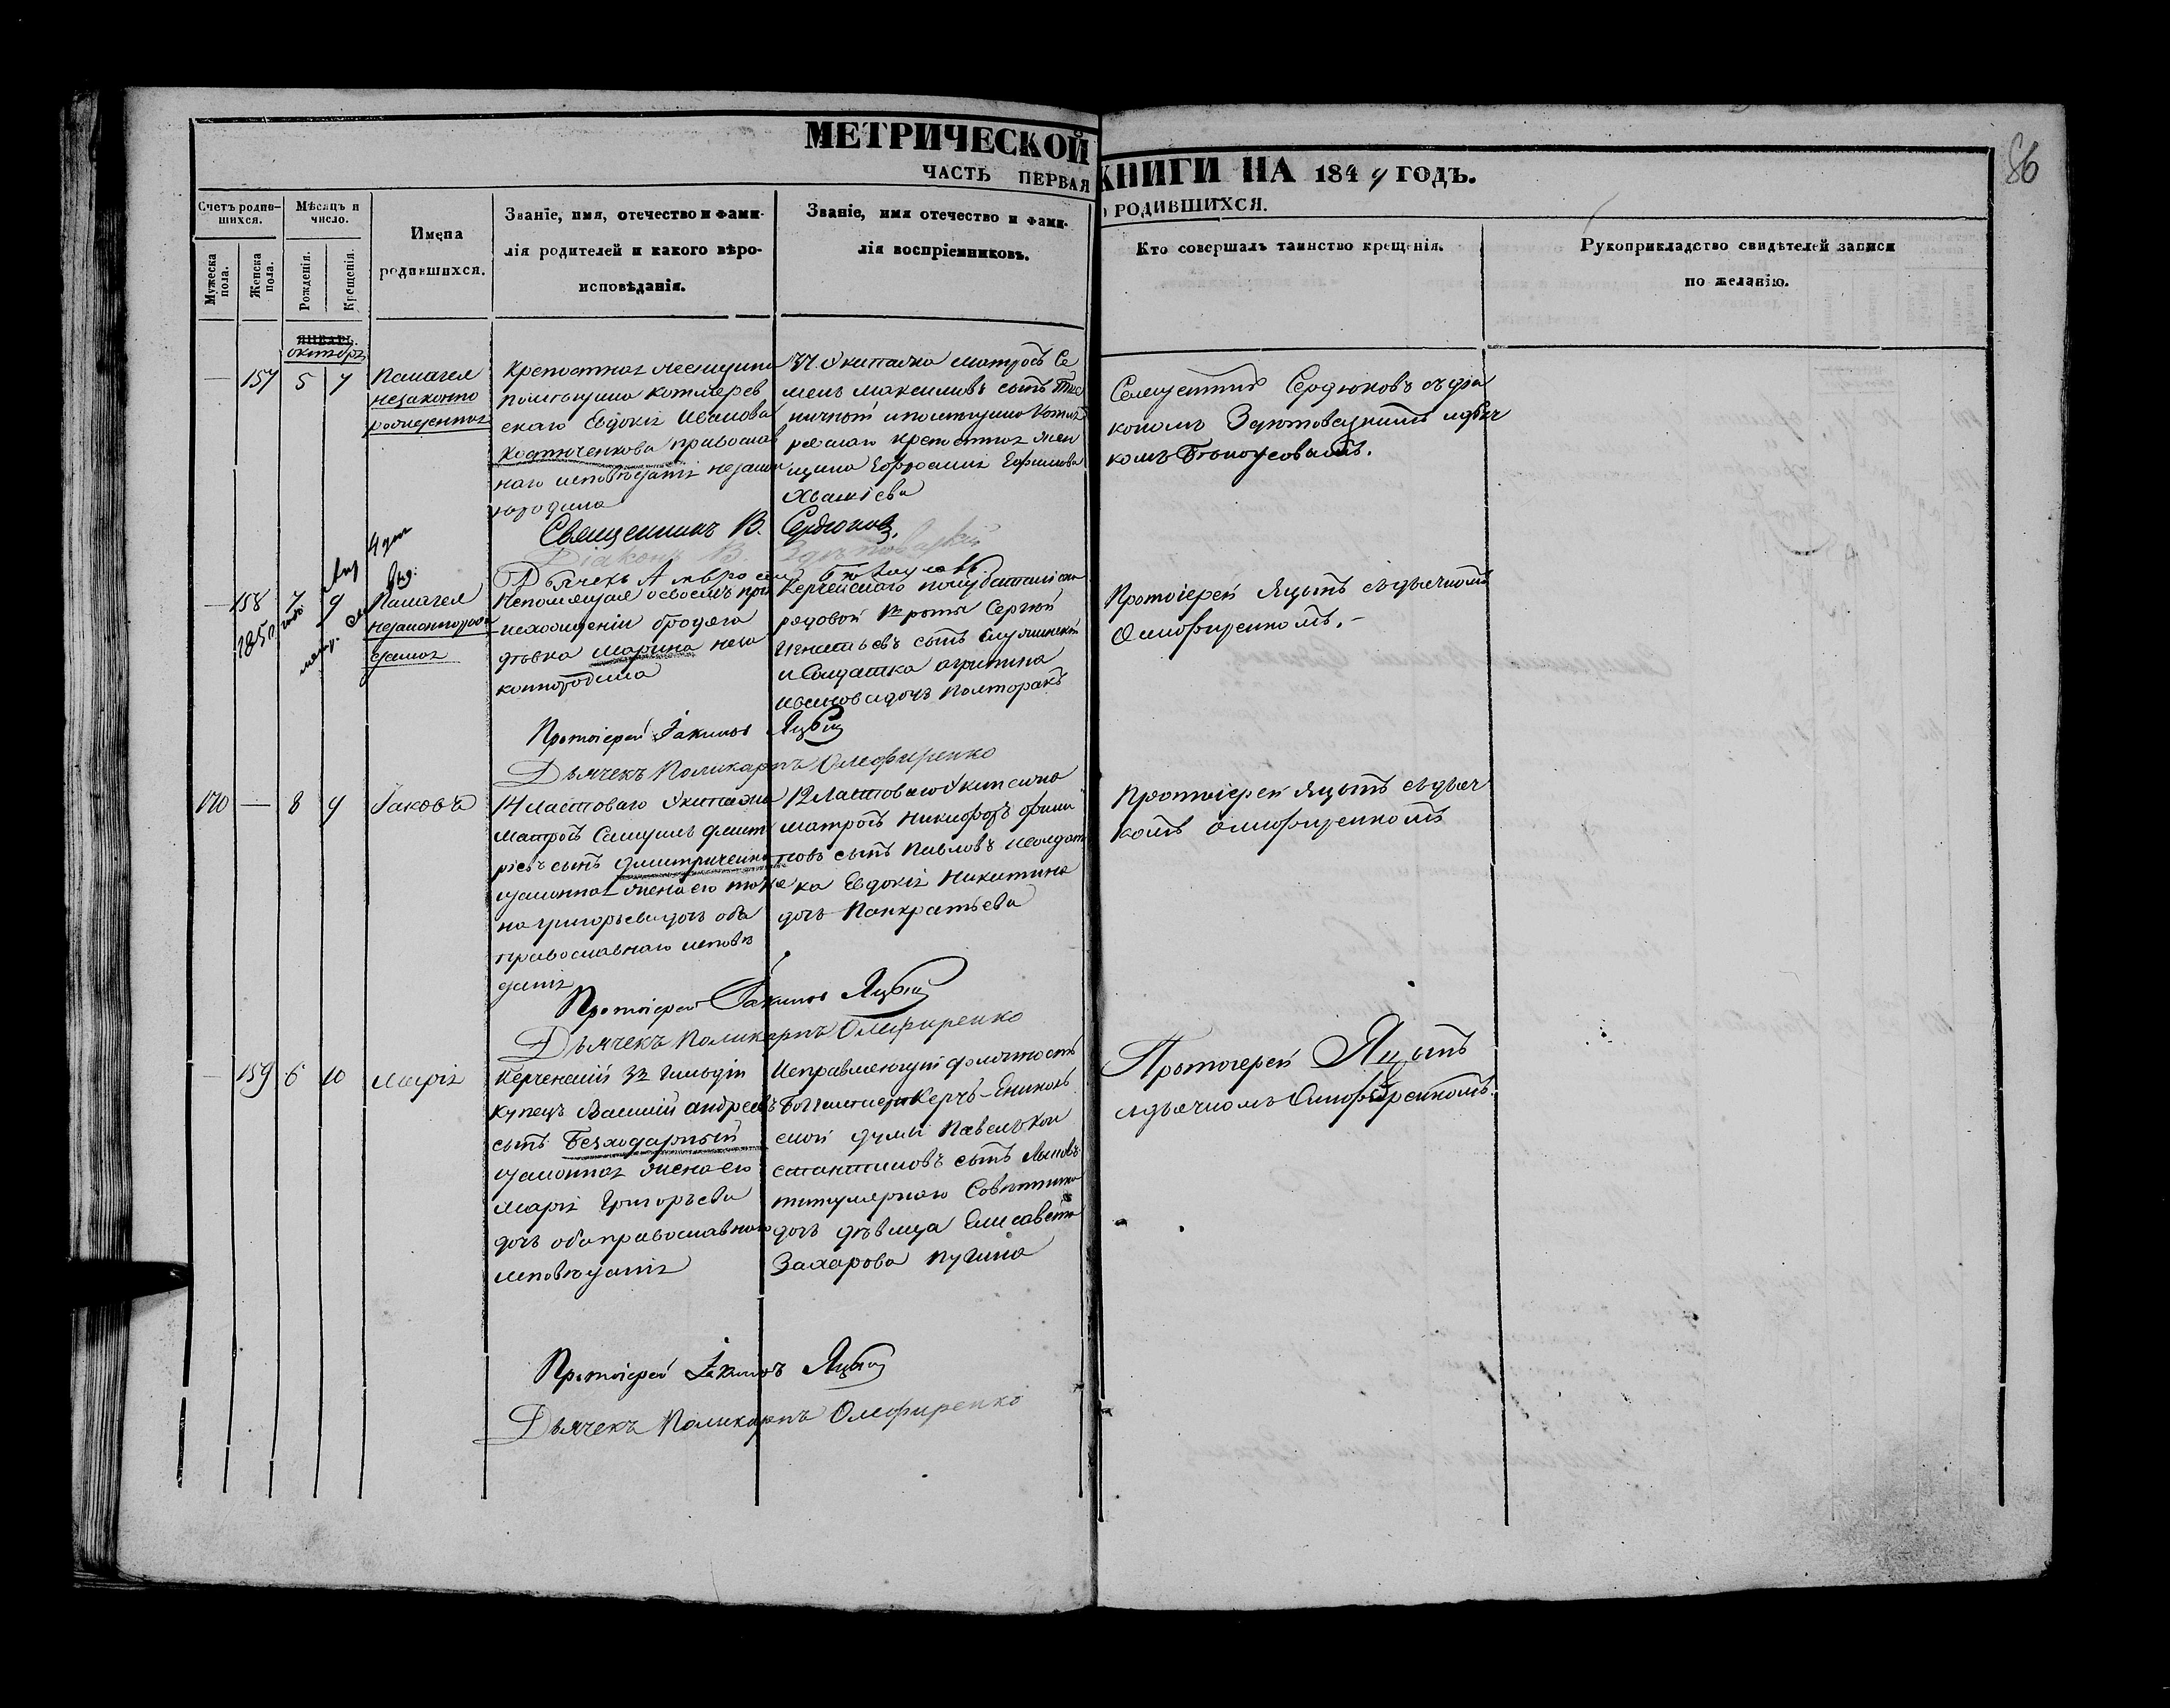 МЕТРИЧЕСКОЙ
ЧАСТЬ ПЕРВАЯ
КНИГИ НА 1849 ГОДЪ.
О РОДИВШИХСЯ.
86
Счетъ родив-
шихся.
Мужеска
пола.
Женска
пола.
Мѣсяцъ и
число.
Рожденія.
Крещенія.
Имена
родившихся.
Званіе, имя, отечество и фами-
лія родителей и какого вѣро-
исповѣданія.
Званіе, имя отечество и фами-
лія воспріемниковъ.
Кто совершалъ таинство крещенія.
Рукоприкладство свидѣтелей записи
по желанію.
ЯНВАРЬ.
октябрь
157 5 7
Пелагея
незаконно
рожденная
Крепостная женщина
помещика Котляров
скаго Евдокія Иванова
Костюченкова православ
наго исповѣданія незакон
но родила
Экипажа матрозъ Се
менъ Максимовъ сынъ
крепостная жен
щина Ефросинія Ефимова
Священникъ Сердюковъ съ діа
кономъ
комъ Белоусовымъ.
Священникъ В. Сердюковъ
Діаконъ В.
Дьячекъ Амвросій Белоусовъ.
158 7 9
1850
Пелагея
незаконнорож
денная
Непомнящая о своемъ про
исхожденіи бродяга
дѣвка Марина неза
коннородила
Керченскаго полубаталіона
рядовой роты Сергѣй
Игнатьевъ сынъ
и Солдатка Агрипина
Иванова дочь Полторакъ
Протоіерей Яцынъ съ дьячкомъ
Олиофиренкомъ.
Протоіерей Іакимъ Яцынъ
Дьячекъ Поликарпъ Олиофиренко
170 — 8 9
Іаковъ
14 ластоваго Экипажа
матрозъ Самуилъ Дмит
ріевъ сынъ Дмитриченко
законная жена его
Григорьева дочь оба
православнаго исповѣ
данія
12 Ластоваго Экипажа
матрозъ Никифоръ Фили
повъ сынъ Павловъ и солдат
ка Евдокія Никитина
дочь Панкратьева
Протоіерей Яцынъ съ дьяч
комъ Олиофиренкомъ
Протоіерей Іакимъ Яцынъ
Дьячекъ Поликарпъ Олиофиренко
159 6 10
Марія
Керченскій 3й Гильдіи
купецъ Василій Андреевъ
сынъ Безходарный
законная жена его
Марія Григорьева
дочь оба православнаго
исповѣданія
Исправляющій должность
Керчь-Ениколь
ской думы Павелъ Кон
стантиновъ сынъ
титулярнаго Совѣтника
дочь дѣвица Елисавета
Захарова
Протоіерей Яцынъ
съ дьячкомъ Олиофиренкомъ.
Протоіерей Іакимъ Яцынъ
Дьячекъ Поликарпъ Олиофиренко